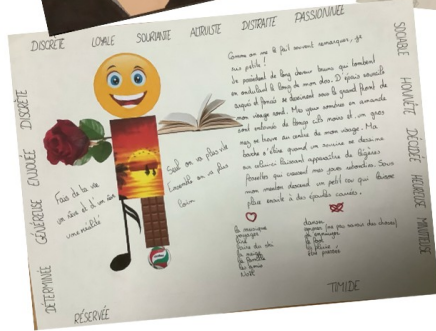 DISCRÈTE LOYALE SOURIANTE ALTRUISTE DISTRAITE PASSIONNÉE
SOCIABLE HONNÊTE DÉCIDÉE HEUREUSE MINUTIEUSE
TIMIDE
RÉSERVÉE
DÉTERMINÉE GÉNÉREUSE ENJOUÉE DISCRÈTE
Fais de ta vie
un rêve et d'un rêve
une réalité
Seul on va plus vite
Ensemble on va plus
loin
Comme on me le fait souvent remarquer, je
suis petite !
Je possède de long cheveux bruns qui tombent
en ondulant le long de mon dos. D'épais sourcils
et foncés se dessinent sous le grand front de
mon visage rond. Mes yeux sombres en amande
sont entourés de longs cils noirs et un gros
nez se trouve au centre de mon visage. Ma
bouche s'étire quand un sourire se dessine
laissant apparaître de légères
fossettes qui creusent mes joues rebondies. Sous
mon menton descend un petit cou qui laisse
place ensuite à des épaules carrées.
la musique
voyager
faire du ski
la famille
les amis
Noël
danser
la pluie